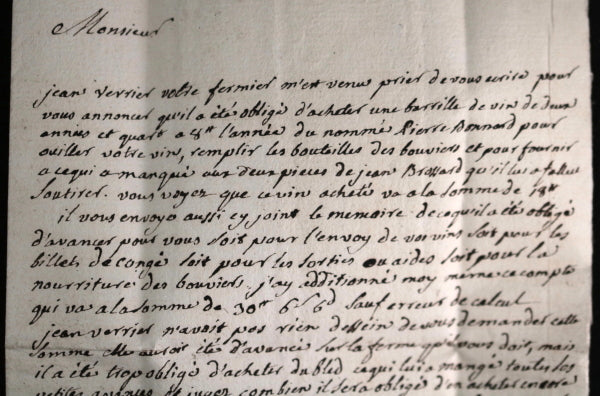 Monsieur
jean Verrier votre fermier m'est venu prier de vous ecrire pour
vous annoncer qu'il a été obligé d'acheter une barrille de vin de deux
années et quart a 8tt l'année du nommé Pierre Bonnard pour
ouiller votre vin, remplir les bouteilles des bouviers et pour fournir
a ce qui a manqué aux deux pieces de jean Brossard qu'il lui a fallut
soutirer. vous voyez que ce vin acheté va a la somme de 18tt
il vous envoye aussi cy joint le memoire de ce qu'il a été obligé
d'avancer pour vous soit pour l'envoy de vos vins soit pour les
billets de congé soit pour les sorties ou aides soit pour la
nourriture des bouviers. j'ay additionné moy meme ce compte
qui va a la somme de 30tt 6s 6d sauf erreur de calcul
jean verrier n'avoit pas rien dessein de vous demander cette
somme elle auroit été d'avance sur la ferme qu'il vous doit, mais
il a été trop obligé d'acheter du bled ce qui lui a mangé toutes les
petites avances de jugez combien il sera obligé d'en acheter encore